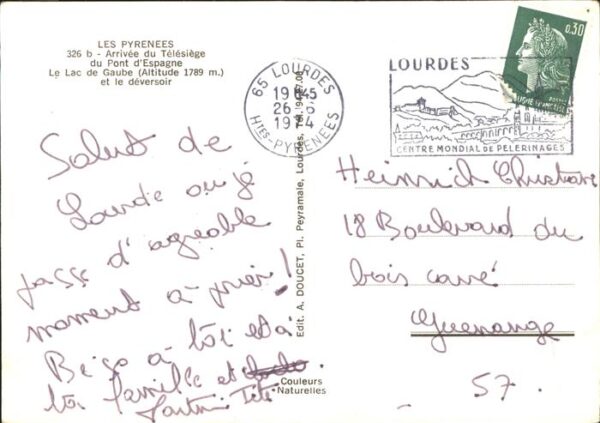 LES PYRENEES
326 b - Arrivée du Télésiège
du Pont d'Espagne
Le Lac de Gaube (Altitude 1789 m.)
et le déversoir
Salut de
Lourde ou jé
passe d'agréable
moment à prier!
Biso à toi et à
ta famille et
Couleurs
Naturelles
Edit. A. DOUCET, Pl. Peyramale, Lourdes, Tél. 94.27.08
65 LOURDES
19H45
26-6
1974
HTES-PYRENEES
LOURDES
CENTRE MONDIAL DE PELERINAGES
0,30
Heinrich Christiane
18 Boulevard du
bois carré
Guenange
57.